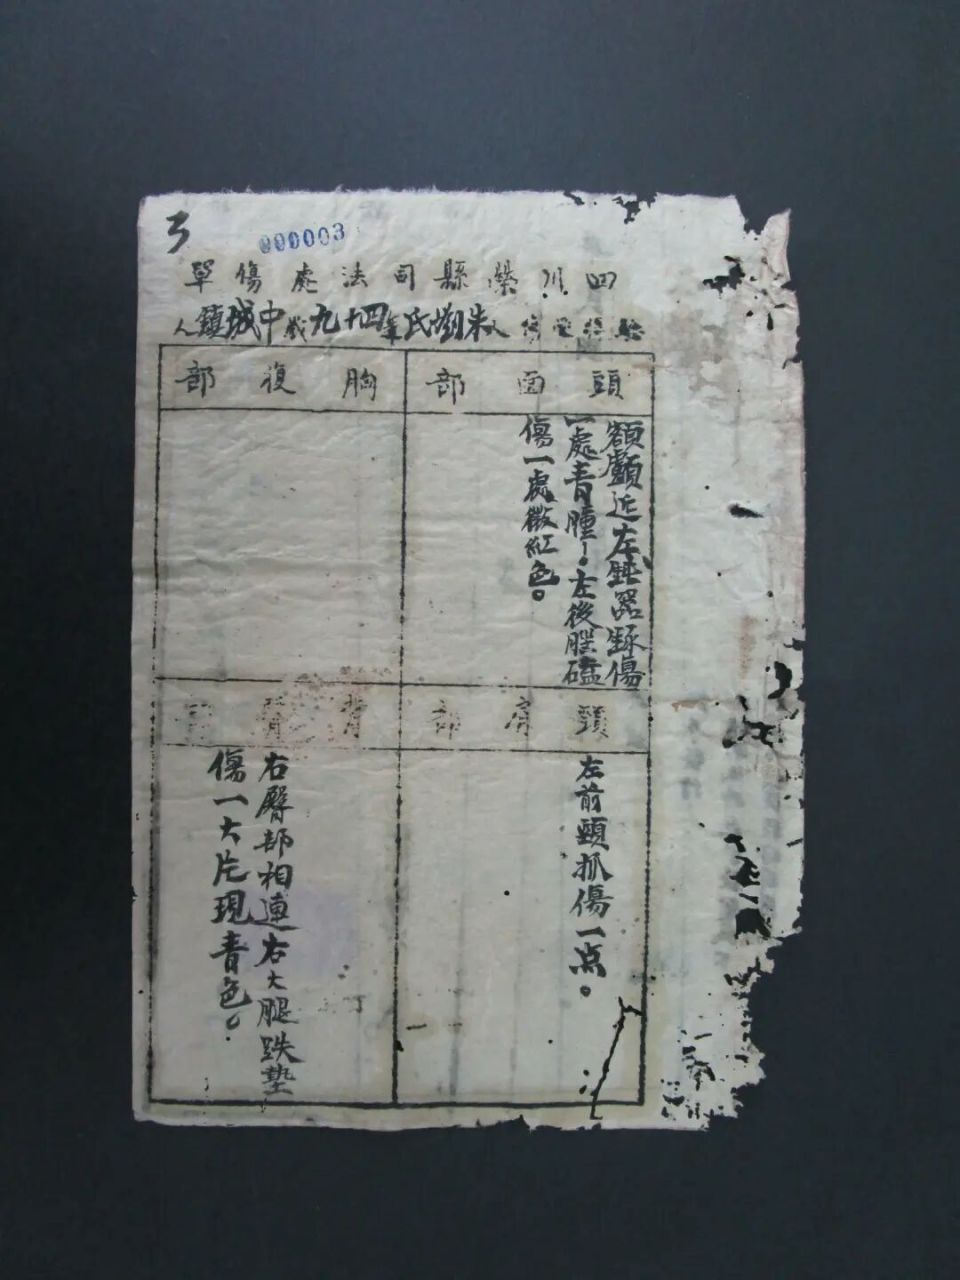 3
000003
四川榮縣司法處傷單
驗得受傷人朱劉氏年四十九歲中城鎮人
頭面部
額顱近左鈍器毆傷
一處青腫。左後腿磕
傷一處微紅色。
胸復部
頸肩部
左前頸抓傷一点。
背臀
右臀部相連右大腿跌墊
傷一大片現青色。